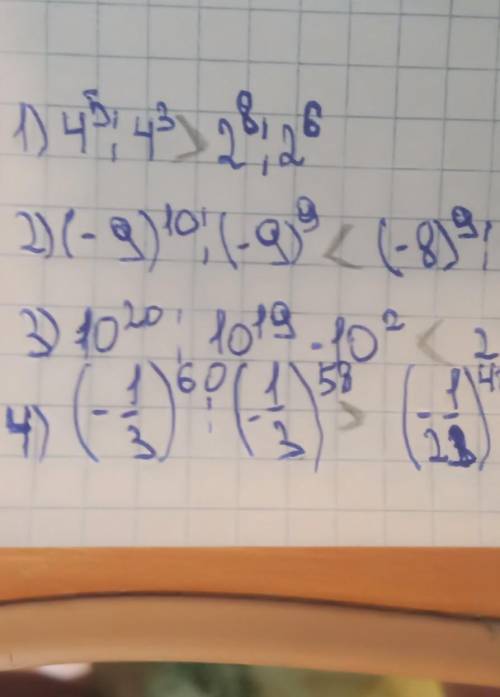 1) 4⁵ : 4³ > 2⁸ : 2⁶
2) (-9)¹⁰ : (-9)⁹ < (-8)⁹ :
3) 10²⁰ : 10¹⁹ · 10² < 2
4) (-1/3)⁶⁰ : (-1/3)⁵⁸ >